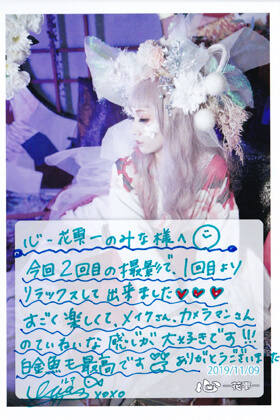 心-花雫-のみな様へ
今回2回目の撮影で、1回目より
リラックスして出来ました♥♥♥
すごく楽しくて、メイクさん、カメラマンさん
のていねいな感じが大好きです!!!
白金魚も最高です ありがとうございました
xoxo
2019/11/09
心-花雫-